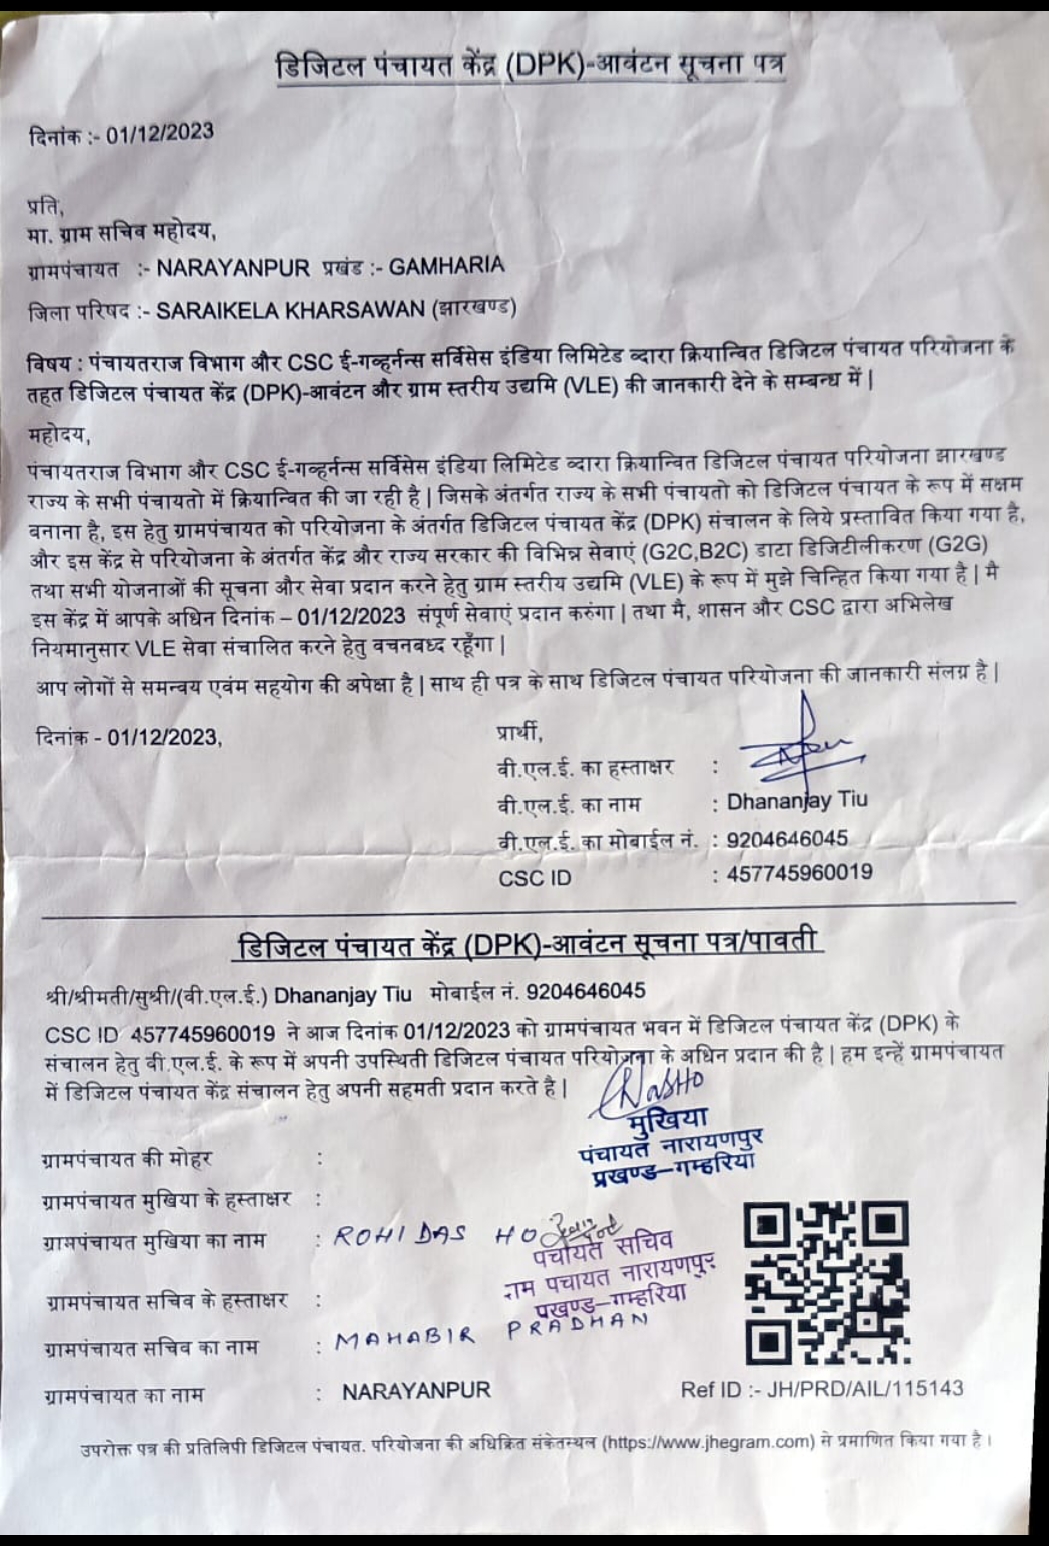 डिजिटल पंचायत केंद्र (DPK)-आवंटन सूचना पत्र
दिनांक :- 01/12/2023
प्रति,
मा. ग्राम सचिव महोदय,
ग्रामपंचायत :- NARAYANPUR प्रखंड :- GAMHARIA
जिला परिषद :- SARAIKELA KHARSAWAN (झारखण्ड)
विषय : पंचायतराज विभाग और CSC ई-गव्हर्नन्स सर्विसेस इंडिया लिमिटेड व्दारा क्रियान्वित डिजिटल पंचायत परियोजना के
तहत डिजिटल पंचायत केंद्र (DPK)-आवंटन और ग्राम स्तरीय उद्यमि (VLE) की जानकारी देने के सम्बन्ध में |
महोदय,
पंचायतराज विभाग और CSC ई-गव्हर्नन्स सर्विसेस इंडिया लिमिटेड व्दारा क्रियान्वित डिजिटल पंचायत परियोजना झारखण्ड
राज्य के सभी पंचायतो में क्रियान्वित की जा रही है | जिसके अंतर्गत राज्य के सभी पंचायतो को डिजिटल पंचायत के रूप में सक्षम
बनाना है, इस हेतु ग्रामपंचायत को परियोजना के अंतर्गत डिजिटल पंचायत केंद्र (DPK) संचालन के लिये प्रस्तावित किया गया है,
और इस केंद्र से परियोजना के अंतर्गत केंद्र और राज्य सरकार की विभिन्न सेवाएं (G2C,B2C) डाटा डिजिटीलीकरण (G2G)
तथा सभी योजनाओं की सूचना और सेवा प्रदान करने हेतु ग्राम स्तरीय उद्यमि (VLE) के रूप में मुझे चिन्हित किया गया है | मै
इस केंद्र में आपके अधिन दिनांक – 01/12/2023 संपूर्ण सेवाएं प्रदान करुंगा | तथा मै, शासन और CSC द्वारा अभिलेख
नियमानुसार VLE सेवा संचालित करने हेतु वचनबध्द रहूँगा |
आप लोगों से समन्वय एवंम सहयोग की अपेक्षा है | साथ ही पत्र के साथ डिजिटल पंचायत परियोजना की जानकारी संलग्न है |
दिनांक - 01/12/2023,
प्रार्थी,
वी.एल.ई. का हस्ताक्षर :
वी.एल.ई. का नाम : Dhananjay Tiu
वी.एल.ई. का मोबाईल नं. : 9204646045
CSC ID : 457745960019
डिजिटल पंचायत केंद्र (DPK)-आवंटन सूचना पत्र/पावती
श्री/श्रीमती/सुश्री/(वी.एल.ई.) Dhananjay Tiu मोबाईल नं. 9204646045
CSC ID 457745960019 ने आज दिनांक 01/12/2023 को ग्रामपंचायत भवन में डिजिटल पंचायत केंद्र (DPK) के
संचालन हेतु वी.एल.ई. के रूप में अपनी उपस्थिती डिजिटल पंचायत परियोजना के अधिन प्रदान की है | हम इन्हें ग्रामपंचायत
में डिजिटल पंचायत केंद्र संचालन हेतु अपनी सहमती प्रदान करते है |
मुखिया
पंचायत नारायणपुर
प्रखण्ड–गम्हरिया
ग्रामपंचायत की मोहर :
ग्रामपंचायत मुखिया के हस्ताक्षर :
ग्रामपंचायत मुखिया का नाम : ROHIDAS HO
पंचायत सचिव
पंचायत नारायणपुर
प्रखण्ड–गम्हरिया
ग्रामपंचायत सचिव के हस्ताक्षर :
ग्रामपंचायत सचिव का नाम : MAHABIR PRADHAN
ग्रामपंचायत का नाम : NARAYANPUR
Ref ID :- JH/PRD/AIL/115143
उपरोक्त पत्र की प्रतिलिपी डिजिटल पंचायत. परियोजना की अधिक्रित संकेतस्थल (https://www.jhegram.com) से प्रमाणित किया गया है ।